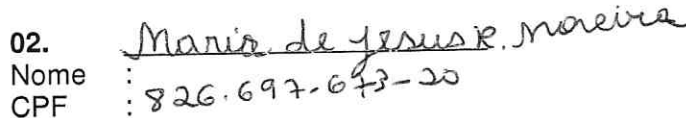 02. Maria de Jesus R. Moreira
Nome :
CPF : 826.697.673-20